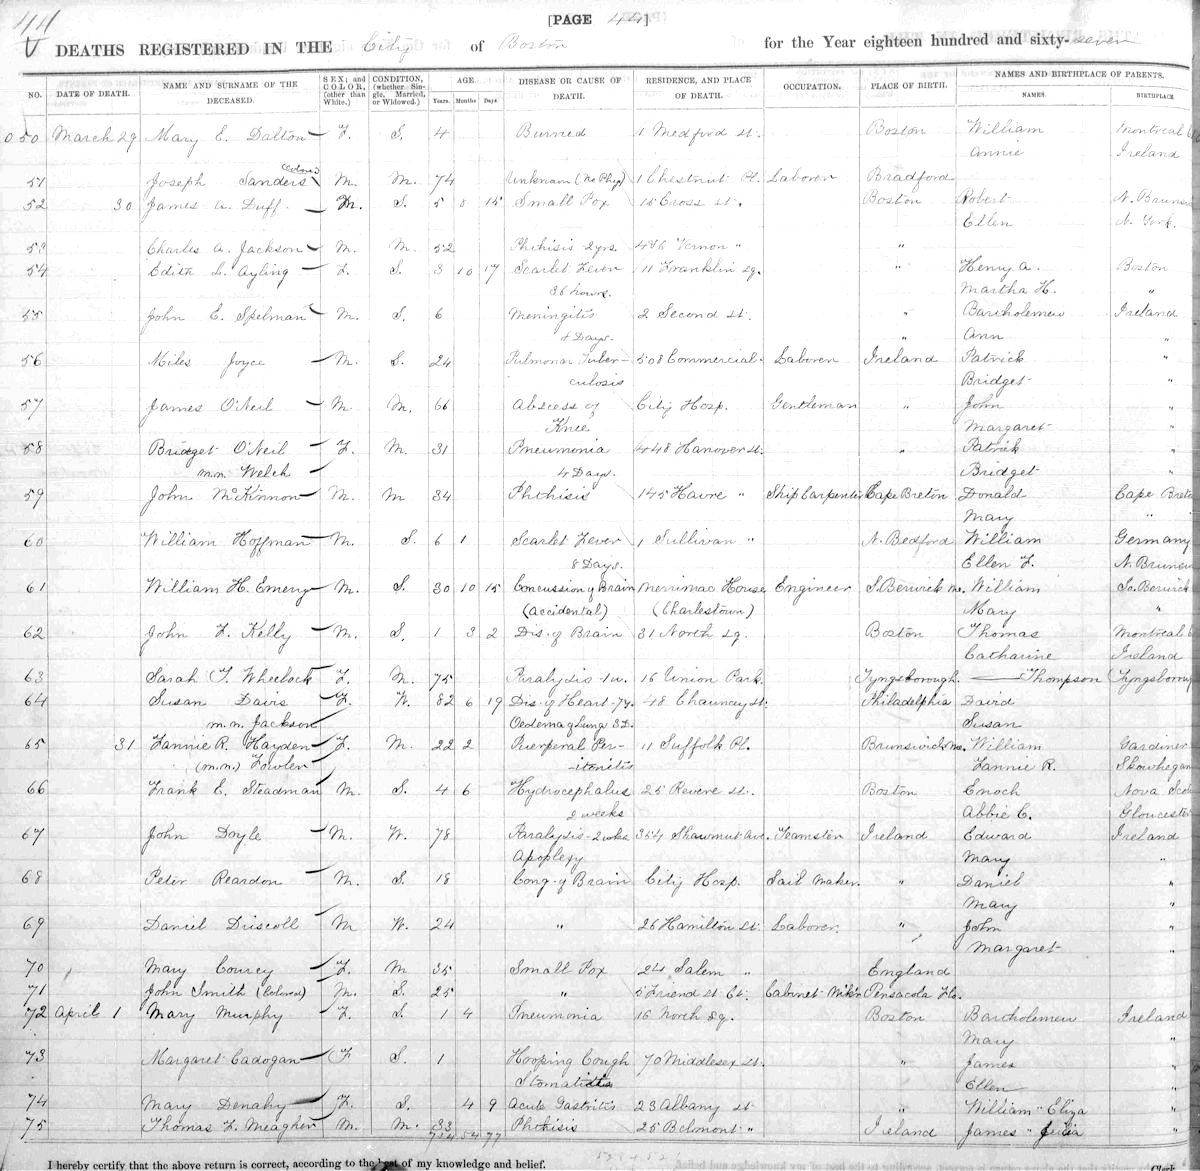 44
[PAGE 44]
DEATHS REGISTERED IN THE City of Boston for the Year eighteen hundred and sixty-seven
NO. DATE OF DEATH. NAME AND SURNAME OF THE DECEASED. SEX; and COLOR, (other than White.) CONDITION, (whether Single, Married, or Widowed.) AGE. Years. Months Days DISEASE OR CAUSE OF DEATH. RESIDENCE, AND PLACE OF DEATH. OCCUPATION. PLACE OF BIRTH. NAMES AND BIRTHPLACE OF PARENTS. NAMES. BIRTHPLACE
050 March 29 Mary E. Dalton F. S. 4 Burned 1 Medford St. Boston William Montreal
Annie Ireland
51 Joseph Sanders Colored M. M. 74 Unknown (No Phys) 1 Chestnut Pl. Laborer Bradford
52 30 James A. Duff M. S. 5 8 15 Small Pox 15 Cross St. Boston Robert N. Brunsw
Ellen N. York.
53 Charles A. Jackson M. M. 52 Phthisis 2 yrs. 476 Vernon " "
54 Edith L. Ayling F. S. 3 10 17 Scarlet Fever 11 Franklin Sq. " Henry A. Boston
36 hours. Martha H. "
55 John E. Spelman M. S. 6 Meningitis 2 Second St. " Bartholemew Ireland
4 Days. " Ann "
56 Miles Joyce M. S. 24 Pulmonar Tuber- 508 Commercial Laborer Ireland Patrick "
culosis Bridget "
57 James O'Neil M. M. 66 Abscess of City Hosp. Gentleman " John "
Knee Margaret "
58 Bridget O'Neil F. M. 31 Pneumonia 448 Hanover St. " Patrick "
m.n. Welch 4 Days. Bridget "
59 John McKinnon M. M 34 Phthisis 145 Havre " Ship Carpenter Cape Breton Donald Cape Breto
Mary " "
60 William Hoffman M. S. 6 1 Scarlet Fever 1 Sullivan " N. Bedford William Germany
8 Days. Ellen F. N. Brunsw
61 William H. Emery M. S. 30 10 15 Concussion of Brain Merrimac House Engineer S. Berwick Me. William So. Berwick
(Accidental) (Charlestown) Mary "
62 John F. Kelly M. S. 1 3 2 Dis. of Brain 31 North Sq. Boston Thomas Montreal
Catharine Ireland
63 Sarah T. Wheelock F. M. 75 Paralysis-1w. 16 Union Park. Tyngsborough. Thompson Tyngsboroug
64 Susan Davis F. W. 82 6 19 Dis. of Heart-7y. 48 Chauncy St. Philadelphia David
m.n. Jackson Oedema of Lung 3D. Susan
65 31 Fannie R. Hayden F. M. 22 2 Puerperal Per- 11 Suffolk Pl. Brunswick Me. William Gardiner
(m.n.) Fowler itonitis Fannie R. Skowhegan
66 Frank E. Steadman M. S. 4 6 Hydrocephalus 25 Revere St. Boston Enoch Nova Sco
2 weeks Abbie C. Gloucester
67 John Doyle M. W. 78 Paralysis-2 wks 354 Shawmut Ave. Teamster Ireland Edward Ireland
Apoplexy Mary "
68 Peter Reardon M. S. 18 Cong. of Brain City Hosp. Sail Maker. " Daniel "
Mary "
69 Daniel Driscoll M W. 24 " 26 Hamilton St. Laborer. " John "
Margaret "
70 Mary Courcy F. M. 35 Small Pox 24 Salem " England
71 John Smith (Colored) M. S. 25 " 5 Friend St Ct. Cabinet Mak'r Pensacola Fla.
72 April 1 Mary Murphy F. S. 1 4 Pneumonia 16 North Sq. Boston Bartholemew Ireland
Mary "
73 Margaret Cadogan F S. 1 Hooping Cough 70 Middlesex St. " James "
Stomatitis Ellen "
74 Mary Denahy F. S. 4 9 Acute Gastritis 23 Albany St " William " Eliza "
75 Thomas F. Meagher M. M. 33 Phthisis 25 Belmont " Ireland James " Julia "
714 54 77
I hereby certify that the above return is correct, according to the best of my knowledge and belief. Clerk